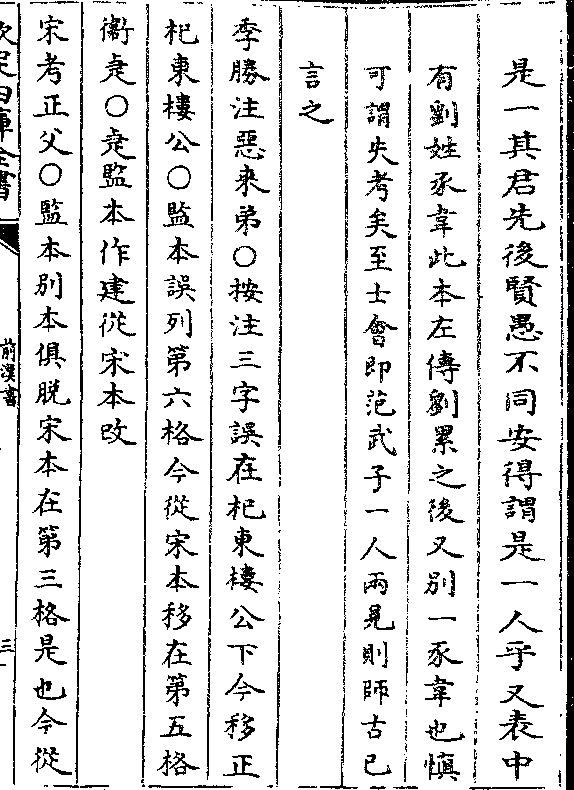 是一其君先後賢愚不同安得謂是一人乎又表中
有劉姓豕韋此本左傳劉累之後又別一豕韋也慎
可謂失考矣至士會即范武子一人兩見則師古已
言之
季勝注惡来弟○按注三字誤在杞東樓公下今移正
杞東樓公○監本誤列第六格今從宋本移在第五格
衞疌○疌監本作建從宋本改
宋考正父○監本別本俱脱宋本在第三格是也今從
欽定四庫全書
前漢書
三